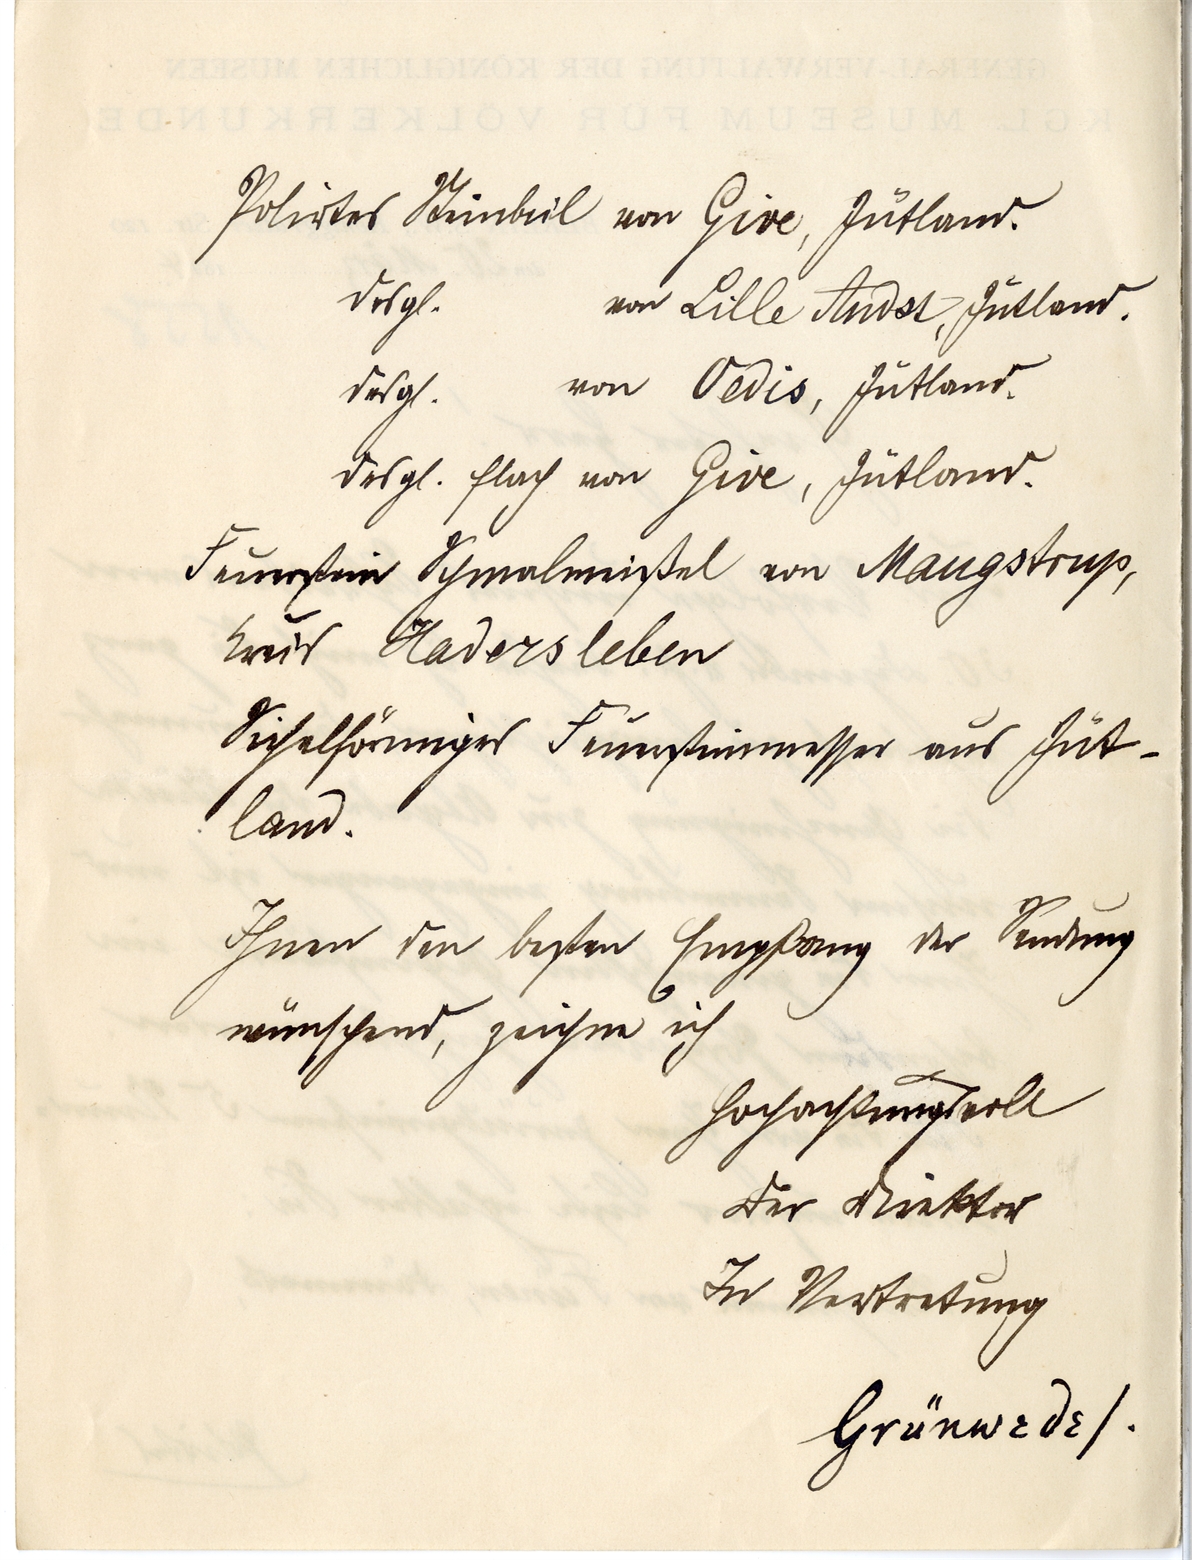 Polirtes Steinbeil von Give, Jütland.
desgl. von Lille Andst, Jütland.
desgl. von Oedis, Jütland.
desgl. flach von Give, Jütland.
Feuerstein Schmalmeißel von Maugstrup,
Kreis Hadersleben
Sichelförmiges Feuersteinmesser aus Jüt-
land.
Ihnen den besten Empfang der Sendung
wünschend, zeichne ich
Hochachtungsvoll
Der Direktor
In Vertretung
Grünwedel.